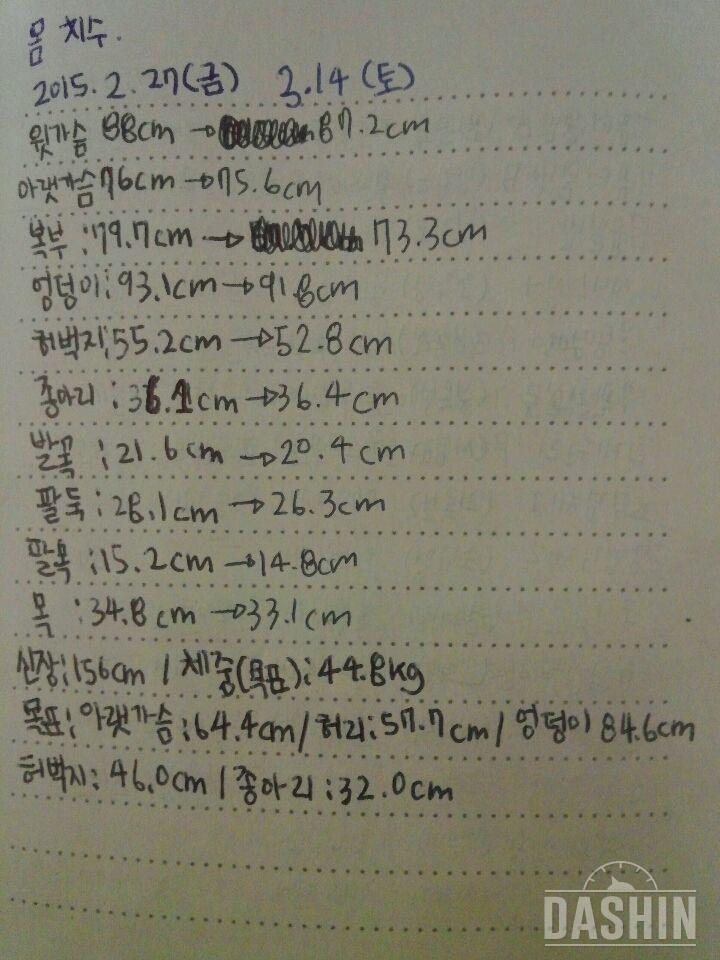 몸 치수.
2015. 2. 27(금) 3.14 (토)
윗가슴 88cm → 87.2cm
아랫가슴 76cm → 75.6cm
복부 : 79.7cm → 73.3cm
엉덩이 : 93.1cm → 91.8cm
허벅지 : 55.2cm → 52.8cm
종아리 : 36.1cm → 36.4cm
발목 : 21.6cm → 20.4cm
팔뚝 : 28.1cm → 26.3cm
팔목 : 15.2cm → 14.8cm
목 : 34.8cm → 33.1cm
신장 : 156cm / 체중(목표) : 44.8kg
목표 : 아랫가슴 : 64.4cm / 허리 : 57.7cm / 엉덩이 84.6cm
허벅지 : 46.0cm / 종아리 : 32.0cm
DASHIN